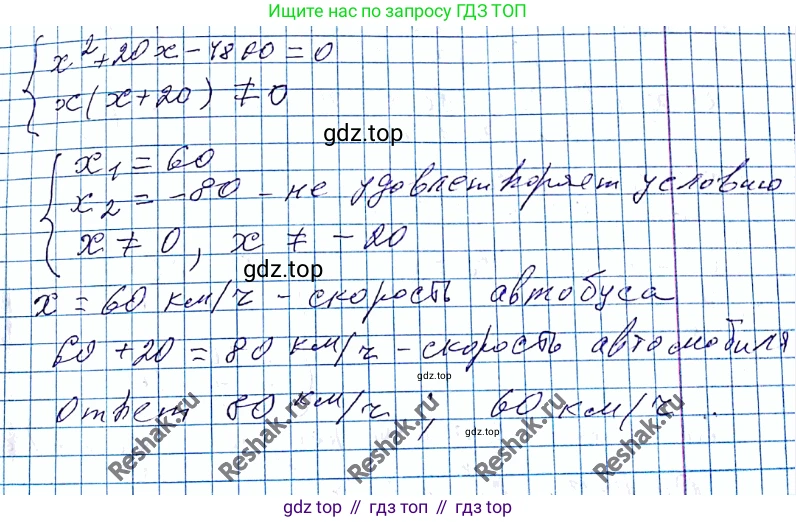 Ищите нас по запросу ГДЗ ТОП
x² + 20x - 4800 = 0
x(x+20) ≠ 0
gdz.top
x₁ = 60
x₂ = -80 - не удовлетворяет условию
x ≠ 0, x ≠ -20
gdz.top
x = 60 км/ч - скорость автобуса
60 + 20 = 80 км/ч - скорость автомобиля
gdz.top
Ответ 80 км/ч ; 60 км/ч.
gdz.top
Reshak.ru Reshak.ru Reshak.ru Reshak.ru
gdz.top // гдз.top // gdz.top // гдз.top